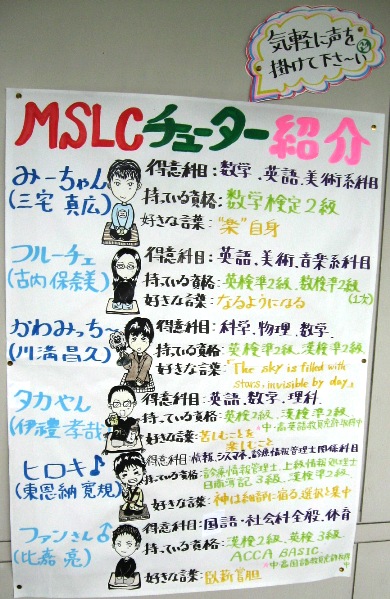 気軽に声を
掛けて下さ〜い
MSLCチューター紹介
みーちゃん
(三宅 真広)
得意科目:数学、英語、美術系科目
持っている資格:数学検定2級
好きな言葉:"楽"自身
フルーチェ
(古内 保奈美)
得意科目:英語、美術、音楽系科目
持っている資格:英検準2級、数検準2級
(1次)
好きな言葉:なるようになる
かわみっち〜
(川満 昌久)
得意科目:科学、物理、数学
持っている資格:英検準2級、漢検準2級
好きな言葉:「The sky is filled with
stars, invisible by day.」
タカやん
(伊禮 孝哉)
得意科目:英語、数学、理科
持っている資格:英検2級、漢検準2級
*中・高英語教職免許取得中
好きな言葉:苦しむことを
楽しむこと
ヒロキ♪
(東恩納 寛規)
得意科目:情報、シスマネ、診療情報管理士関係科目
持っている資格:診療情報管理士、上級情報処理士
日商簿記3級、漢検準2級
好きな言葉:神は細部に宿る、選択と集中
ファンさん♪
(比嘉 亮)
得意科目:国語・社会科全般、体育
持っている資格:漢検2級、英検3級
ACCA BASIC
*中・高国語教職免許取得中
好きな言葉:臥薪嘗胆